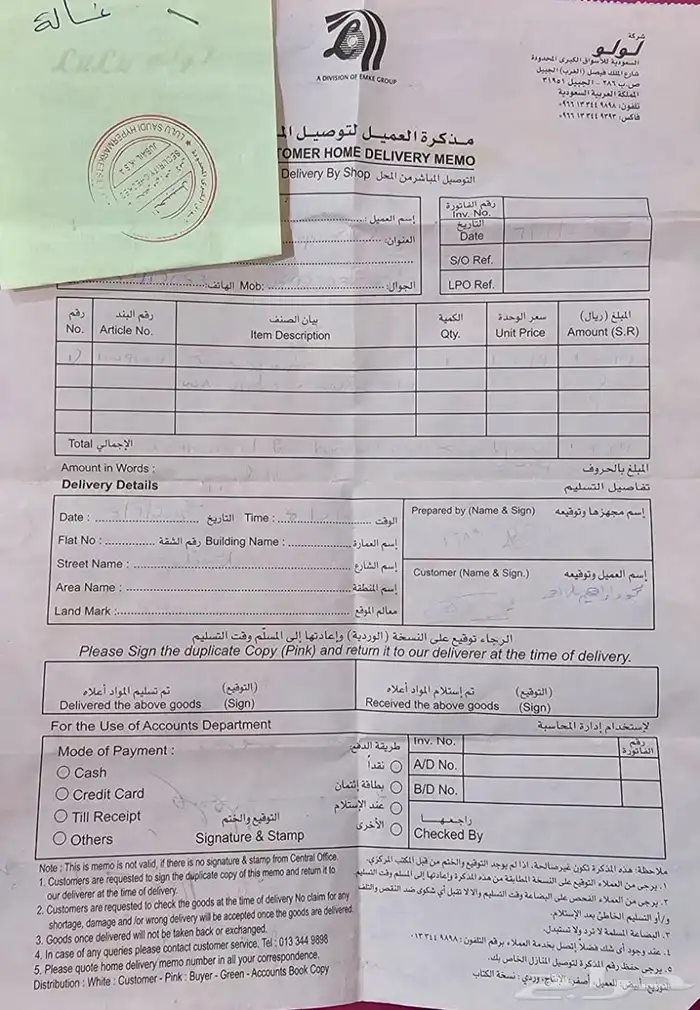 غسالة
شركة
لولو
السعودية للأسواق الكبرى المحدودة
شارع الملك فيصل (الغرب) الجبيل
ص.ب ٢٨٦ - الجبيل ٣١٩٥١
المملكة العربية السعودية
تلفون: ٩٨٩٨ ٣٤٤ ١٣ ٩٦٦+
فاكس: ٩٣٩٣ ٣٤٤ ١٣ ٩٦٦+
A DIVISION OF EMKE GROUP
LULU SAUDI HYPERMARKET
JUBAIL, K.S.A
SECURITY
مذكرة العميل لتوصيل
TOMER HOME DELIVERY MEMO
Delivery By Shop التوصيل المباشر من المحل
إسم العميل:
العنوان:
الجوال: Mob: الهاتف:
رقم الفاتورة
Inv. No.
التاريخ
Date
S/O Ref.
LPO Ref.
رقم No. رقم البند Article No. بيان الصنف Item Description الكمية Qty. سعر الوحدة Unit Price المبلغ (ريال) Amount (S.R)
Total الإجمالي
Amount in Words : المبلغ بالحروف
Delivery Details تفاصيل التسليم
Date : التاريخ Time : الوقت
Flat No : رقم الشقة Building Name : إسم العمارة
Street Name : إسم الشارع
Area Name : إسم المنطقة
Land Mark : معالم الموقع
Prepared by (Name & Sign) إسم مجهزها وتوقيعه
Customer (Name & Sign.) إسم العميل وتوقيعه
الرجاء توقيع على النسخة (الوردية) وإعادتها إلى المسلّم وقت التسليم
Please Sign the duplicate Copy (Pink) and return it to our deliverer at the time of delivery.
تم تسليم المواد أعلاه (التوقيع)
Delivered the above goods (Sign)
تم إستلام المواد أعلاه (التوقيع)
Received the above goods (Sign)
For the Use of Accounts Department لإستخدام إدارة المحاسبة
Mode of Payment : طريقة الدفع:
Cash نقداً
Credit Card بطاقة إئتمان
Till Receipt عند الإستلام
Others الأخرى
التوقيع والختم
Signature & Stamp
Inv. No. رقم الفاتورة
A/D No.
B/D No.
راجعها
Checked By
Note : This is memo is not valid, if there is no signature & stamp from Central Office.
1. Customers are requested to sign the duplicate copy of this memo and return it to
our deliverer at the time of delivery.
2. Customers are requested to check the goods at the time of delivery No claim for any
shortage, damage and /or wrong delivery will be accepted once the goods are delivered.
3. Goods once delivered will not be taken back or exchanged.
4. In case of any queries please contact customer service, Tel : 013 344 9898
5. Please quote home delivery memo number in all your correspondence.
Distribution : White : Customer - Pink : Buyer - Green - Accounts Book Copy
ملاحظة: هذه المذكرة تكون غير صالحة، اذا لم يوجد التوقيع والختم من قبل المكتب المركزي.
١. يرجى من العملاء التوقيع على النسخة المطابقة من هذه المذكرة وإعادتها إلى المسلم وقت التسليم.
٢. يرجى من العملاء الفحص على البضاعة وقت التسليم والا لا تقبل أي شكوى ضد النقص والتلف
و/أو التسليم الخاطئ بعد الإستلام.
٣. البضاعة المسلمة لا ترد ولا تستبدل.
٤. عند وجود أي شك فضلاً إتصل بخدمة العملاء برقم التلفون: ٩٨٩٨ ٣٤٤ ٠١٣
٥. يرجى حفظ رقم المذكرة لتوصيل المنازل الخاص بك.
التوزيع: أبيض: للعميل، أصفر: الإنتاج، وردي: نسخة الكتاب
حراج